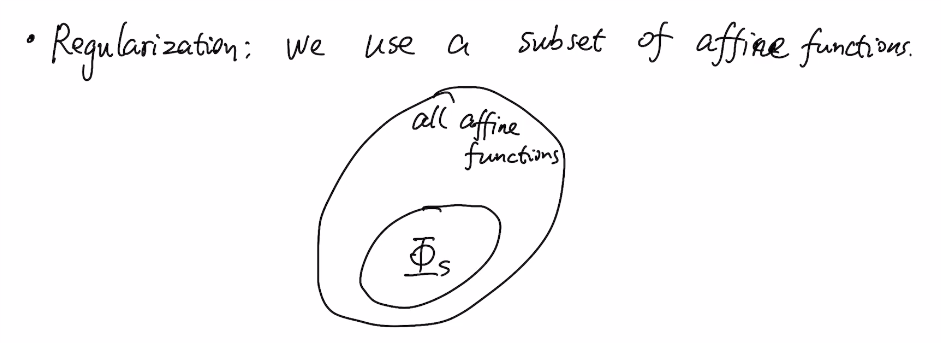 • Regularization: we use a subset of affine functions.
all affine
functions
Φs